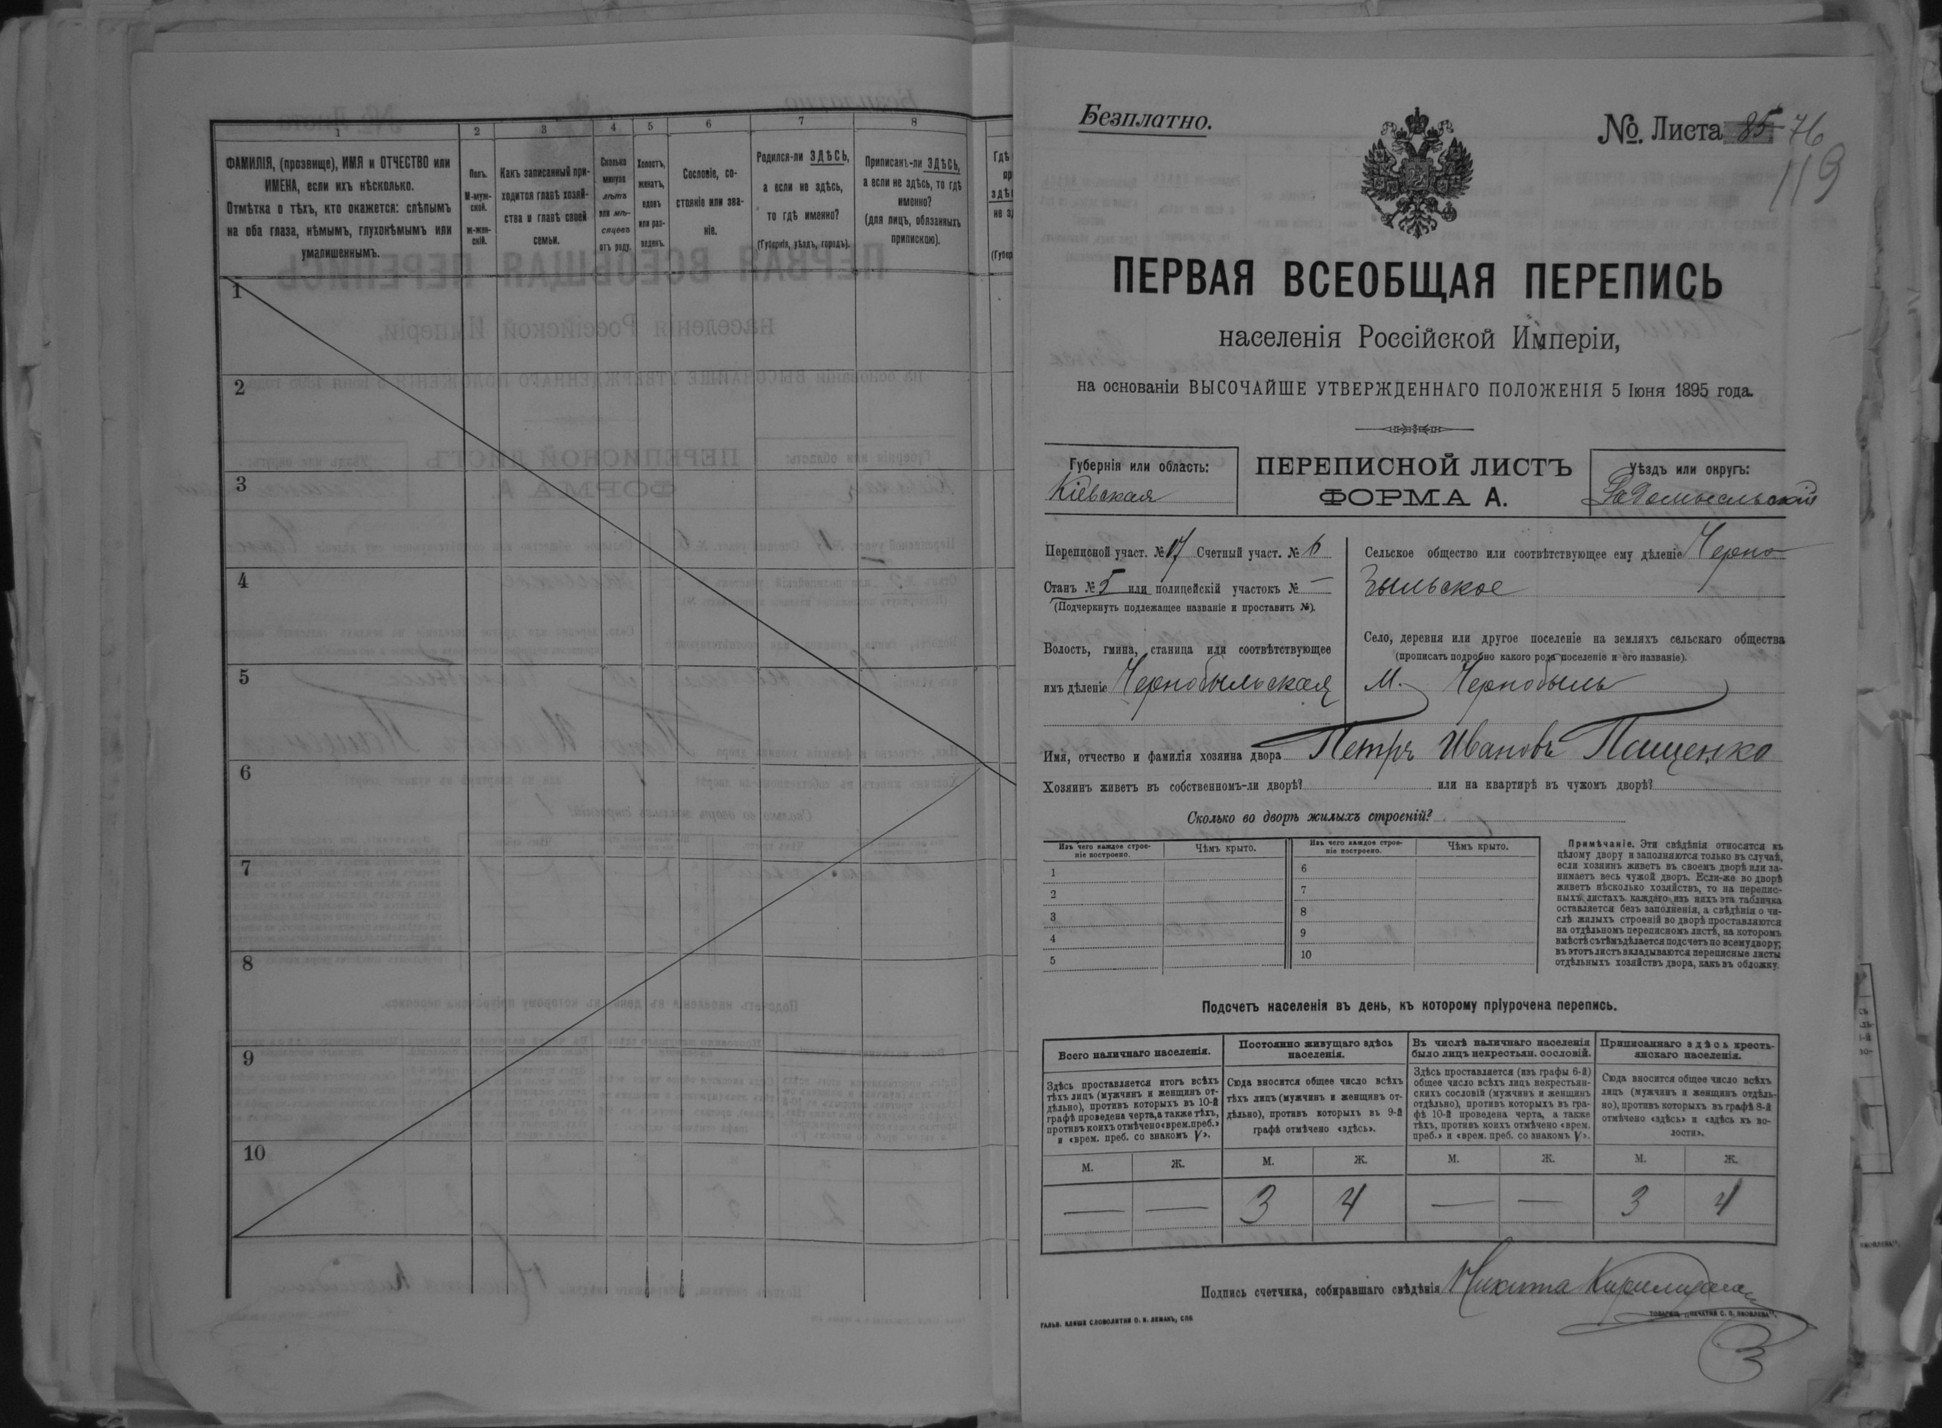 1 2 3 4 5 6 7 8
ФАМИЛІЯ, (прозвище), ИМЯ и ОТЧЕСТВО или ИМЕНА, если ихъ нѣсколько.
Отмѣтка о тѣхъ, кто окажется: слѣпымъ на оба глаза, нѣмымъ, глухонѣмымъ или умалишеннымъ.
Полъ. М-мужской. ж-женскій.
Какъ записанный приходится главѣ хозяйства и главѣ своей семьи.
Сколько минуло лѣтъ или мѣсяцевъ отъ роду.
Холостъ, женатъ, вдовъ или разведенъ.
Сословіе, состояніе или званіе.
Родился-ли ЗДѢСЬ, а если не здѣсь, то гдѣ именно?
(Губернія, уѣздъ, городъ).
Приписанъ-ли ЗДѢСЬ, а если не здѣсь, то гдѣ именно?
(для лицъ, обязанныхъ припискою).
1
2
3
4
5
6
7
8
9
10
Безплатно.
№. Листа 85 76
119
ПЕРВАЯ ВСЕОБЩАЯ ПЕРЕПИСЬ
населенія Россійской Имперіи,
на основаніи ВЫСОЧАЙШЕ УТВЕРЖДЕННАГО ПОЛОЖЕНІЯ 5 Іюня 1895 года.
Губернія или область:
Кіевская
ПЕРЕПИСНОЙ ЛИСТЪ
ФОРМА А.
Уѣздъ или округъ:
Радомысльскій
Переписной участ. № 17 Счетный участ. № 6
Станъ № 5 или полицейскій участокъ № —
(Подчеркнуть подлежащее названіе и проставить №).
Волость, гмина, станица или соотвѣтствующее
имъ дѣленіе Чернобыльская
Сельское общество или соотвѣтствующее ему дѣленіе Черно
быльское
Село, деревня или другое поселеніе на земляхъ сельскаго общества
(прописать подробно какого рода поселеніе и его названіе).
М. Чернобыль
Имя, отчество и фамилія хозяина двора Петръ Ивановъ Пащенко
Хозяинъ живетъ въ собственномъ-ли дворѣ? или на квартирѣ въ чужомъ дворѣ?
Сколько во дворѣ жилыхъ строеній?
Изъ чего каждое строеніе построено. Чѣмъ крыто. Изъ чего каждое строеніе построено. Чѣмъ крыто.
1 6
2 7
3 8
4 9
5 10
Примѣчаніе. Эти свѣдѣнія относятся къ
цѣлому двору и заполняются только въ случаѣ,
если хозяинъ живетъ въ своемъ дворѣ или занимаетъ
весь чужой дворъ. Если-же во дворѣ
живетъ нѣсколько хозяйствъ, то на переписныхъ
листахъ каждаго изъ нихъ эта табличка
оставляется безъ заполненія, а свѣдѣнія о числѣ
жилыхъ строеній во дворѣ проставляются
на отдѣльномъ переписномъ листѣ, на которомъ
вмѣстѣ съ тѣмъ дѣлается подсчетъ по всему двору;
въ этотъ листъ вкладываются переписные листы
отдѣльныхъ хозяйствъ двора, какъ въ обложку.
Подсчетъ населенія въ день, къ которому пріурочена перепись.
Всего наличнаго населенія.
Здѣсь проставляется итогъ всѣхъ тѣхъ лицъ (мужчинъ и женщинъ отдѣльно), противъ которыхъ въ 10-й графѣ проведена черта, а также тѣхъ, противъ коихъ отмѣчено «врем. преб.» и «врем. преб. со знакомъ V».
Постоянно живущаго здѣсь населенія.
Сюда вносится общее число всѣхъ тѣхъ лицъ (мужчинъ и женщинъ отдѣльно), противъ которыхъ въ 9-й графѣ отмѣчено «здѣсь».
Въ числѣ наличнаго населенія было лицъ некрестьян. сословій.
Здѣсь проставляется (изъ графы 6-й) общее число всѣхъ лицъ некрестьянскихъ сословій (мужчинъ и женщинъ отдѣльно), противъ которыхъ въ графѣ 10-й проведена черта, а также тѣхъ, противъ коихъ отмѣчено «врем. преб.» и «врем. преб. со знакомъ V».
Приписаннаго здѣсь крестьянскаго населенія.
Сюда вносится общее число всѣхъ лицъ (мужчинъ и женщинъ отдѣльно), противъ которыхъ въ графѣ 8-й отмѣчено «здѣсь» и «здѣсь къ волости».
М. Ж. М. Ж. М. Ж. М. Ж.
— — 3 4 — — 3 4
Подпись счетчика, собиравшаго свѣдѣнія Никита
ГАЛЬВ. КЛИШЕ СЛОВОЛИТНИ О. И. ЛЕМАНЪ, СПБ
ТОВАРИЩ. „ПЕЧАТНЯ С. П. ЯКОВЛЕВА“.
3